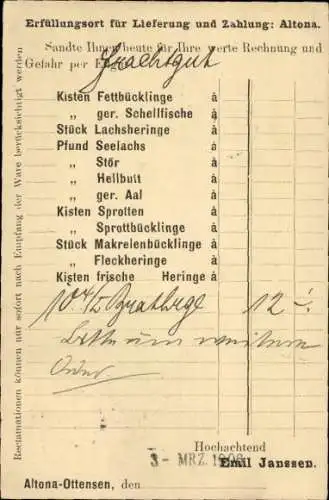 Erfüllungsort für Lieferung und Zahlung: Altona.
Sandte Ihnen heute für Ihre werte Rechnung und
Gefahr per Frachtgut
Kisten Fettbücklinge à
„ ger. Schellfische à
Stück Lachsheringe à
Pfund Seelachs à
„ Stör à
„ Heilbutt à
„ ger. Aal à
Kisten Sprotten à
„ Sprottbücklinge à
Stück Makrelenbücklinge à
„ Fleckheringe à
Kisten frische Heringe à
10 12.-
Bitte um weitere
Order
Hochachtend
3- MRZ. 1906
Emil Janssen.
Altona-Ottensen, den
Reclamationen können nur sofort nach Empfang der Ware berücksichtigt werden